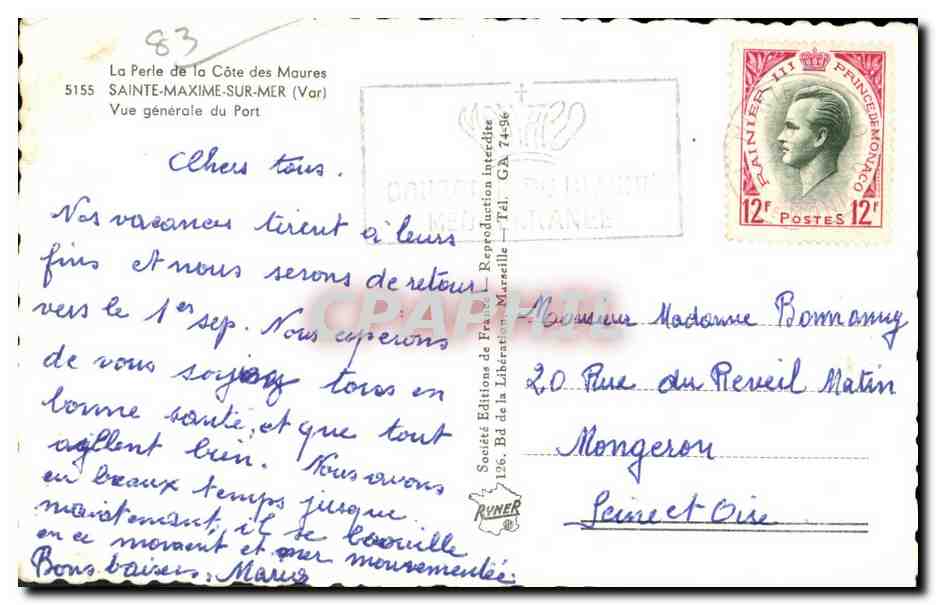 83
La Perle de la Côte des Maures
5155 SAINTE-MAXIME-SUR-MER (Var)
Vue générale du Port
Chers tous.
Nos vacances tirent à leurs
fins et nous serons de retour
vers le 1er sep. Nous esperons
de vous tous en
bonne santé, et que tout
aillent bien. Nous avons
eu beaux temps jusque
maintenant, il se brouille
en ce moment et mer mouvementée.
Bons baisers. Marius
Société Editions de France - Reproduction interdite
126, Bd de la Libération - Marseille - Tél. GA 74-96
RYNER
MEDITERRANEE
RAINIER III PRINCE DE MONACO
12F POSTES 12F
CPAPHIL
Monsieur Madame Bonnamy
20 Rue du Reveil Matin
Mongeron
Seine et Oise